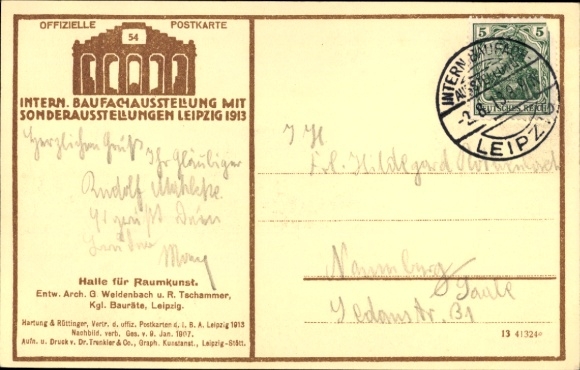 OFFIZIELLE POSTKARTE
54
INTERN. BAUFACHAUSSTELLUNG MIT
SONDERAUSSTELLUNGEN LEIPZIG 1913
Herzlichen Gruß Ihr gläubiger
Rudolf
Halle für Raumkunst.
Entw. Arch. G. Weidenbach u. R. Tschammer,
Kgl. Bauräte, Leipzig.
Hartung & Röttinger, Vertr. d. offiz. Postkarten d. I. B. A. Leipzig 1913
Nachbild. verb. Ges. v. 9. Jan. 1907.
Aufn. u. Druck v. Dr. Trenkler & Co., Graph. Kunstanst., Leipzig-Stött.
5 5
DEUTSCHES REICH
INTERN. BAUFACH-
LEIPZ
Frl. Hildegard
Naumburg
Saale
Sedanstr. 31
13 41324